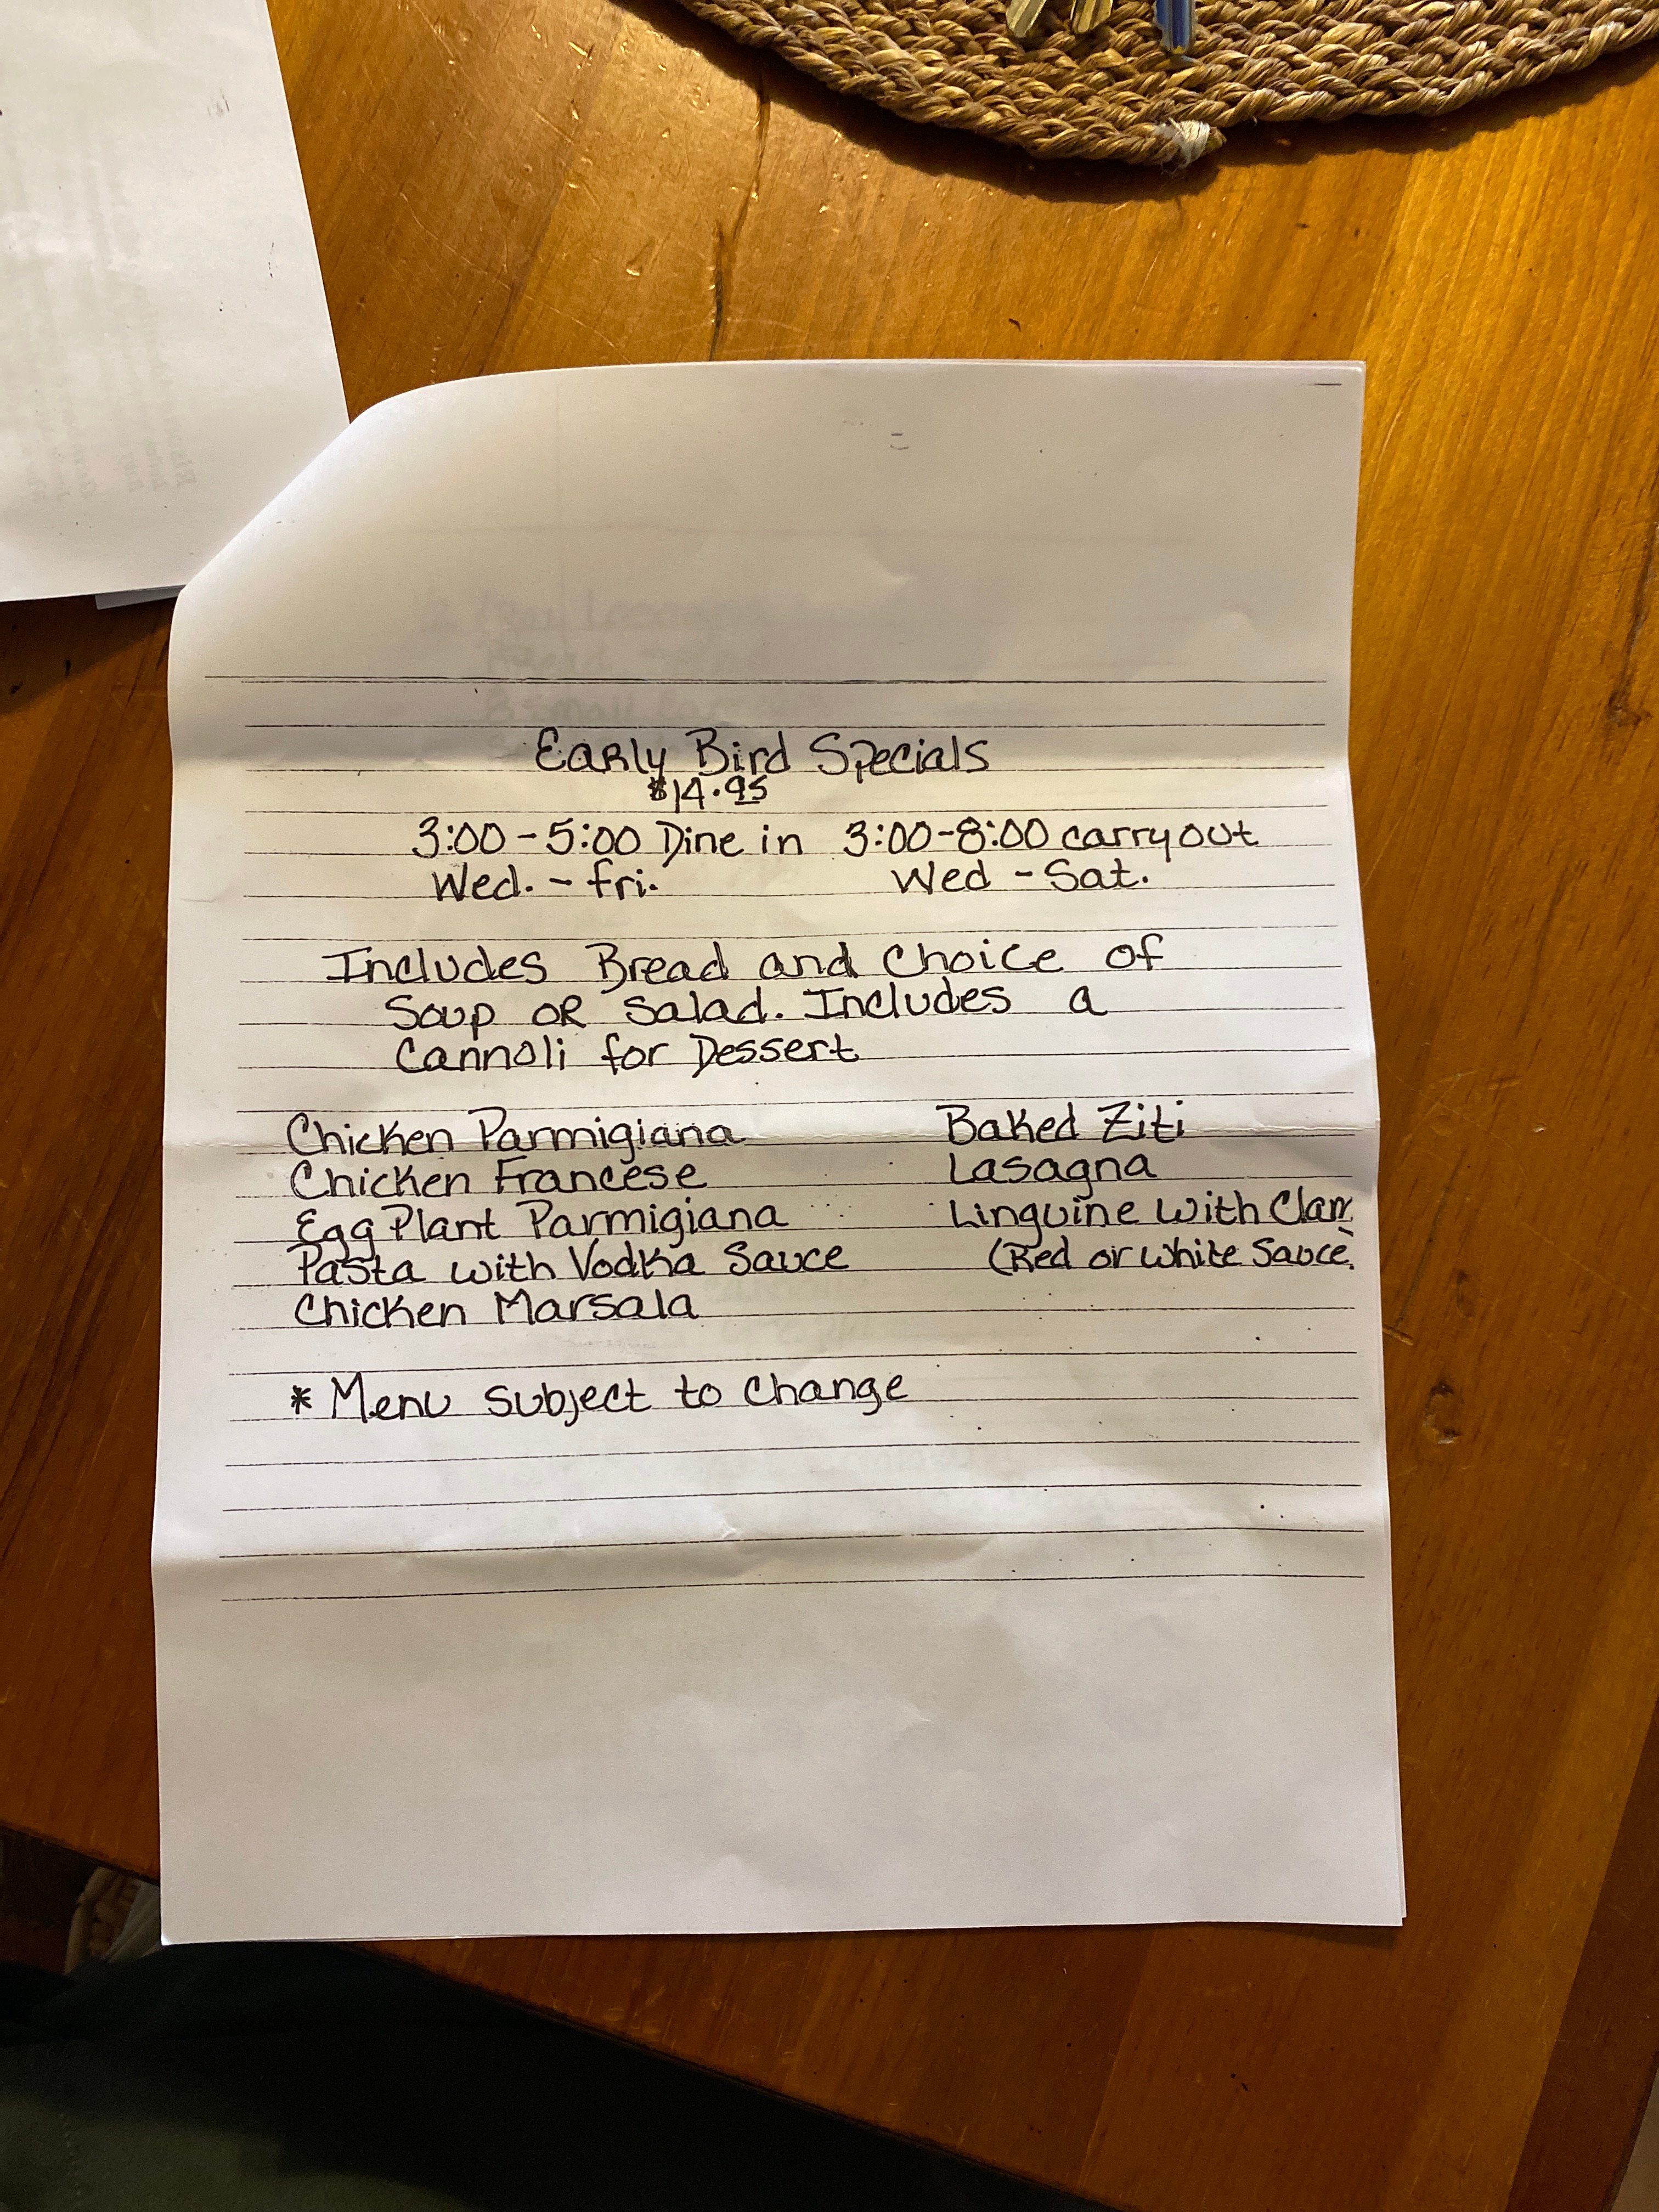 Early Bird Specials
$14.95
3:00-5:00 Dine in 3:00-8:00 carryout
Wed.-fri. Wed-Sat.
Includes Bread and Choice of
Soup or Salad. Includes a
Cannoli for Dessert
Chicken Parmigiana Baked Ziti
Chicken Francese Lasagna
Egg Plant Parmigiana Linguine with Clam
Pasta with Vodka Sauce (Red or White Sauce
Chicken Marsala
* Menu subject to change